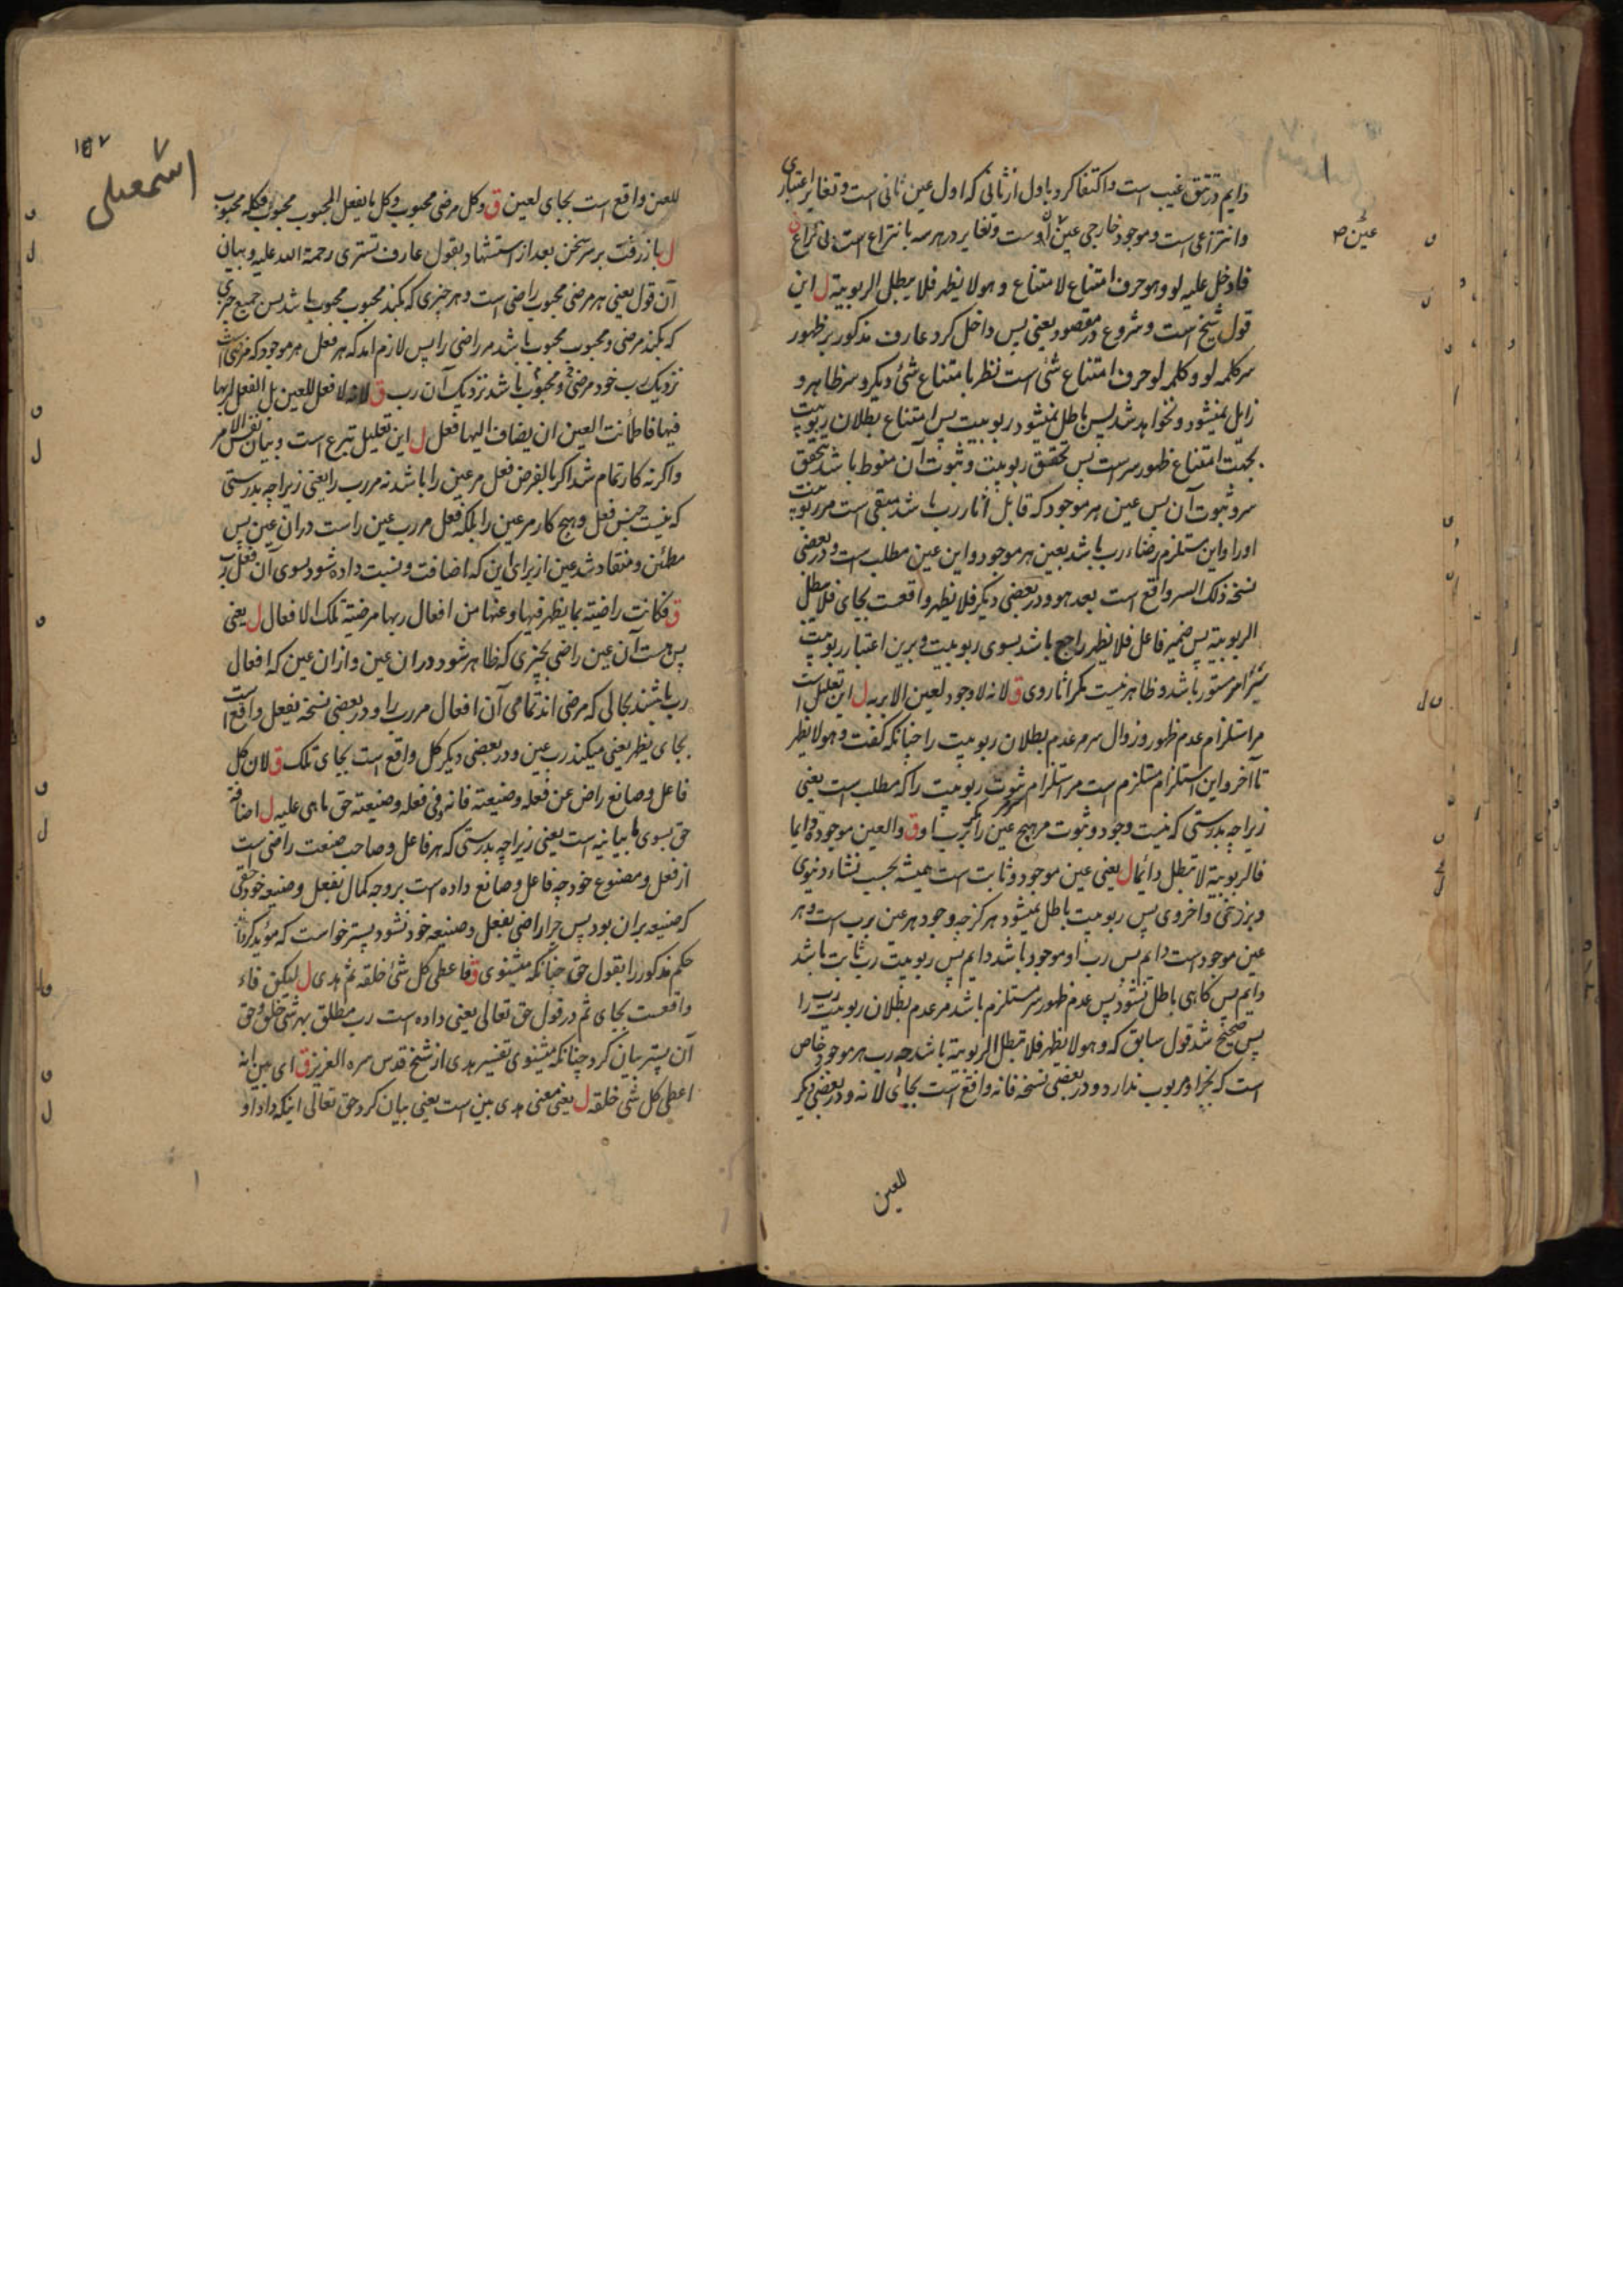 دایم در تتق غیب است و اکتفا کرد باول از ثانی که اول عین ثانی است و تغایر اعتباری
و انتزاعی است و موجود خارجی عین اوست و تغایر در هر سه بانتزاع است
عین صح
فادخل علیه لو وهو حرف امتناع لامتناع وهو لا یظهر فلا یبطل الربوبیة ل این
قول شیخ است و شروع در مقصود یعنی پس داخل کرد عارف مذکور بر ظهور
سر کلمه لو و کلمه لو حرف امتناع شئ است نظر بامتناع شئ دیگر و سر ظاهر و
زایل نمیشود و نخواهد شد پس باطل نمیشود ربوبیت پس امتناع بطلان ربوبیت
بجهت امتناع ظهور سر است پس تحقق ربوبیت و ثبوت آن منوط باشد بتحقق
سر و ثبوت آن پس عین هر موجود که قابل آثار رب باشد مبقی است مر ربوبیت
او را و این مستلزم رضاء رب باشد بعین هر موجود و این عین مطلب است و در بعضی
نسخه ذلک السر واقع است بعد هو و در بعضی دیگر فلا یظهر واقعست بجای فلا یبطل
الربوبیة پس ضمیر فاعل فلا یظهر راجع باشد بسوی ربوبیت و برین اعتبار ربوبیت
امر مستور باشد و ظاهر نیست مگر آثار وی ق لانه لا وجود لعین الا بربه ل این تعلیل است
مر استلزام عدم ظهور و زوال سر مر عدم بطلان ربوبیت را چنانکه گفت وهو لا یظهر
تا آخر و این استلزام مستلزم است مر استلزام ثبوت ربوبیت را که مطلب است یعنی
زیرا چه بدرستی که نیست وجود و ثبوت مر هیچ عین را مگر برب او ق والعین موجودة دایما
فالربوبیة لا تبطل دائما ل یعنی عین موجود و ثابت است همیشه بحسب نشاء دنیوی
و برزخی و اخروی پس ربوبیت باطل نمیشود هرگز چه وجود هر عین برب است و هر
عین موجود است دایم پس رب او موجود باشد دایم پس ربوبیت رب ثابت باشد
دایم پس گاهی باطل نشود پس عدم ظهور سر مستلزم باشد مر عدم بطلان ربوبیت رب را
پس صحیح شد قول سابق که وهو لا یظهر فلا تبطل الربوبیة باشد چه رب هر موجود خاص
است که بجز او مربوب ندارد و در بعضی نسخه فانه واقع است بجای لانه و در بعضی دیگر
للعین
۱۵۷
اسمعیلی
للعین واقع است بجای لعین ق وکل مرضی محبوب وکل ما یفعل المحبوب محبوب فکله محبوب
ل باز رفت بر سر سخن بعد از استشهاد بقول عارف تستری رحمة الله علیه و بیان
آن قول یعنی هر مرضی محبوب راضی است و هر چیزی که بکند محبوب محبوب باشد پس جمیع چیزی
که بکند مرضی و محبوب محبوب باشد مر راضی را پس لازم آمد که هر فعل هر موجود که مرضی است
نزدیک رب خود مرضی و محبوب باشد نزدیک آن رب ق لانه لا فعل للعین بل الفعل لربها
فیها فاطمأنت العین ان یضاف الیها فعل ل این تعلیل تبرع است و بیان نفس الامر
و اگر نه کار تمام شد اگر بالفرض فعل مر عین را باشد نه مر رب را یعنی زیرا چه بدرستی
که نیست جنس فعل و هیچ کار مر عین را بلکه فعل مر رب عین راست در ان عین پس
مطمئن و منقاد شد عین از برای این که اضافت و نسبت داده شود بسوی آن فعل رب
ق فکانت راضیة بما یظهر فیها و عنها من افعال ربها مرضیة تلک الافعال ل یعنی
پس هست آن عین راضی بچیزی که ظاهر شود در ان عین و از ان عین که افعال
رب باشند بحالی که مرضی اند تمامی آن افعال مر رب را و در بعضی نسخه یفعل واقع است
بجای یظهر یعنی میکند رب عین و در بعضی دیگر کل واقع است بجای تلک ق لان کل
فاعل و صانع راض عن فعله وصنیعته فانه وفی فعله وصنیعته حق ما هی علیه ل اضافة
حق بسوی ما بیانیه است یعنی زیرا چه بدرستی که هر فاعل و صاحب صنعت راضی است
از فعل و مصنوع خود چه فاعل و صانع داده است بر وجه کمال بفعل و صنیعه خود حقی
که صنیعه بران بود پس چرا راضی بفعل و صنیعه خود نشود پستر خواست که مؤید گرداند
حکم مذکور را بقول حق چنانکه میشنوی ق فاعطی کل شئ خلقه ثم هدی ل لیکن فاء
واقعست بجای ثم در قول حق تعالی یعنی داده است رب مطلق بهر شئ خلق و حق
آن پستر بیان کرد چنانکه میشنوی تفسیر هدی از شیخ قدس سره العزیز ق ای بین انه
اعطی کل شئ خلقه ل یعنی معنی هدی بین است یعنی بیان کرد حق تعالی اینکه داد او